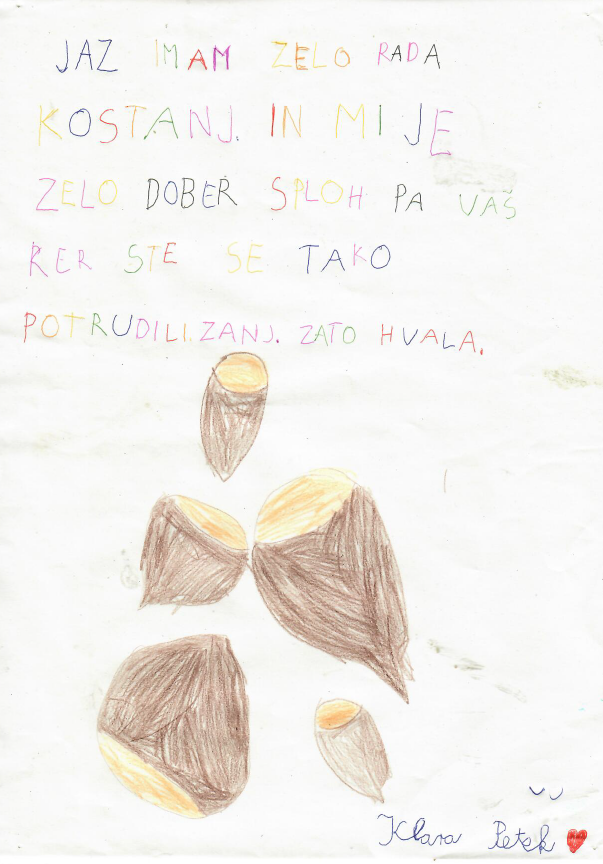 JAZ IMAM ZELO RADA
KOSTANJ. IN MI JE
ZELO DOBER SPLOH PA VAŠ
KER STE SE TAKO
POTRUDILI ZANJ. ZATO HVALA.
Klara